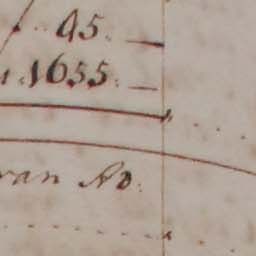 95. —
1655. —
van No.